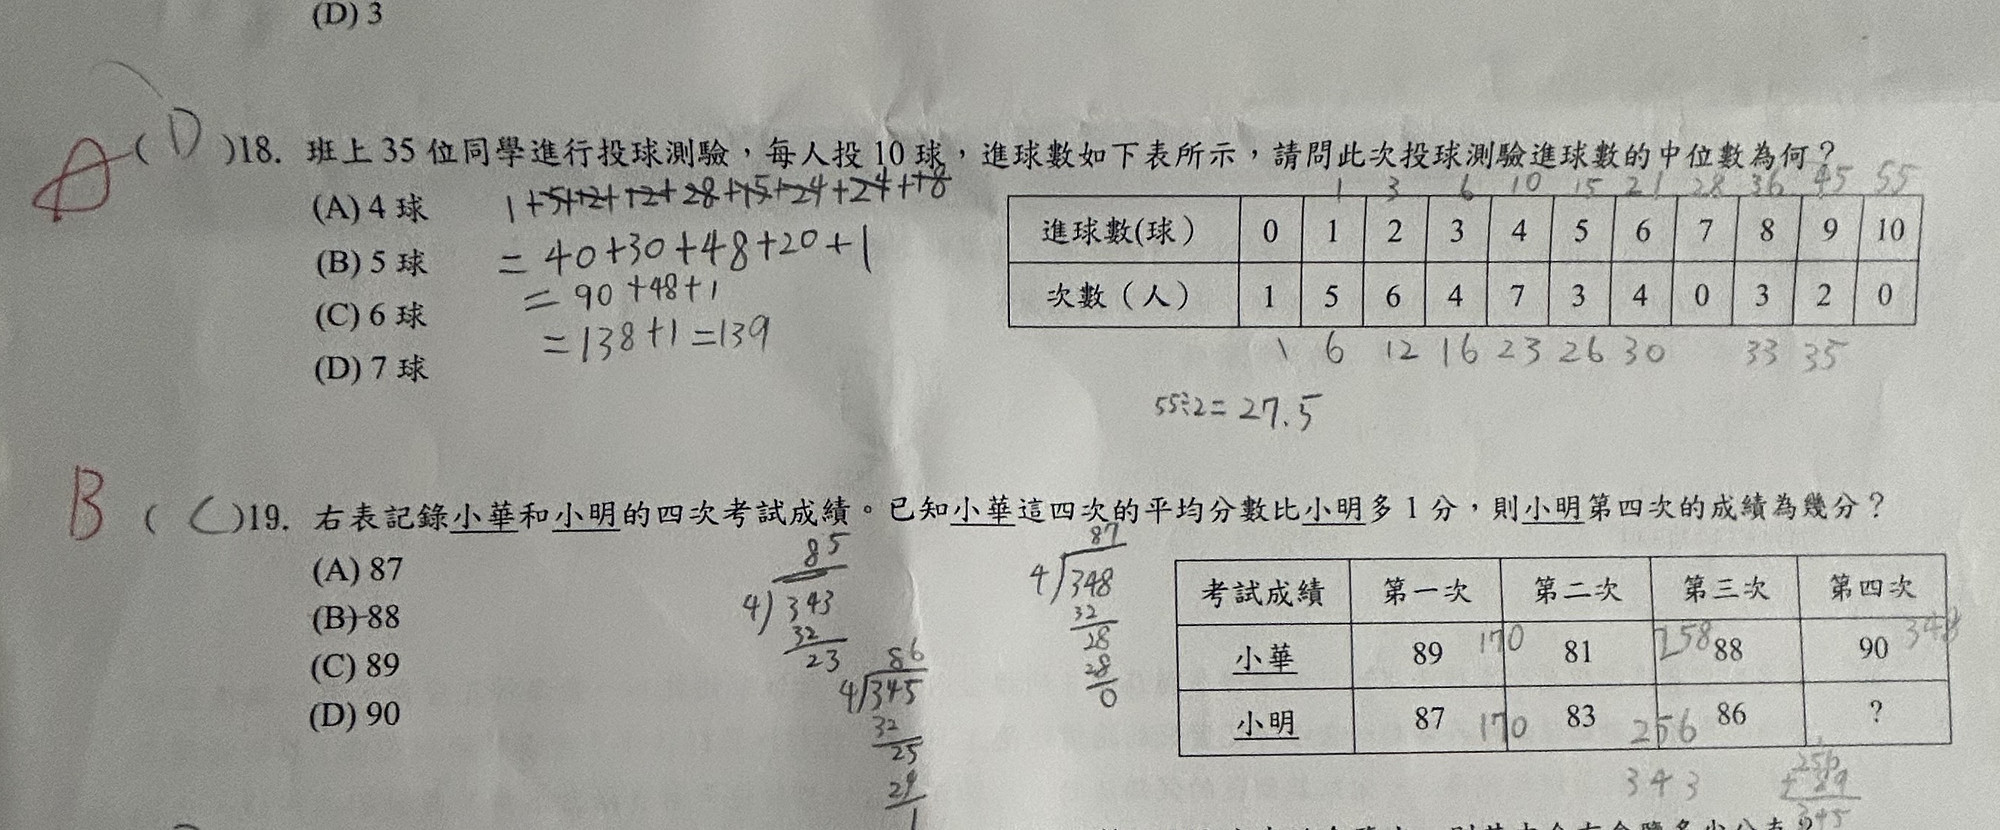 (D) 3
A ( D )18. 班上 35 位同學進行投球測驗，每人投 10 球，進球數如下表所示，請問此次投球測驗進球數的中位數為何？
(A) 4 球
(B) 5 球
(C) 6 球
(D) 7 球
1+5+12+12+28+15+24+24+18
= 40+30+48+20+1
= 90+48+1
= 138+1=139
1 3 6 10 15 21 28 36 45 55
進球數(球) 0 1 2 3 4 5 6 7 8 9 10
次數（人） 1 5 6 4 7 3 4 0 3 2 0
1 6 12 16 23 26 30 33 35
55÷2= 27.5
B ( C )19. 右表記錄小華和小明的四次考試成績。已知小華這四次的平均分數比小明多 1 分，則小明第四次的成績為幾分？
(A) 87
(B) 88
(C) 89
(D) 90
85
4)343
32
23
86
4)345
32
25
24
1
87
4)348
32
28
28
0
考試成績 第一次 第二次 第三次 第四次
小華 89 170 81 258 88 90 348
小明 87 170 83 256 86 ?
343
256
+ 89
345